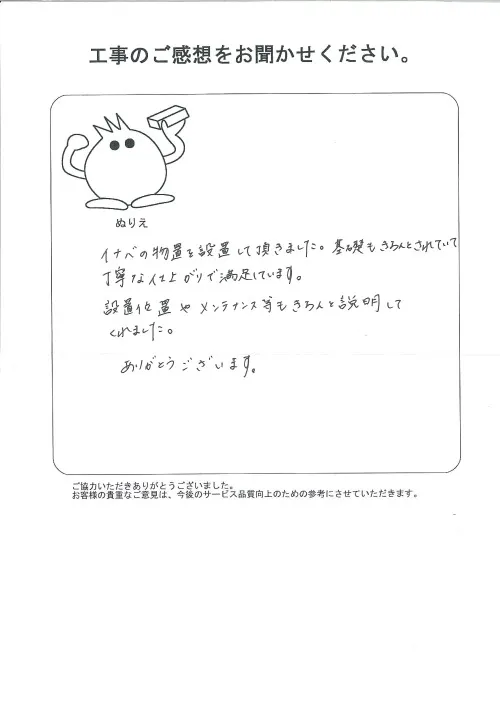 工事のご感想をお聞かせください。
ぬりえ
イナバの物置を設置して頂きました。基礎もきちんとされていて
丁寧な仕上がりで満足しています。
設置位置やメンテナンス等もきちんと説明して
くれました。
ありがとうございます。
ご協力いただきありがとうございました。
お客様の貴重なご意見は、今後のサービス品質向上のための参考にさせていただきます。